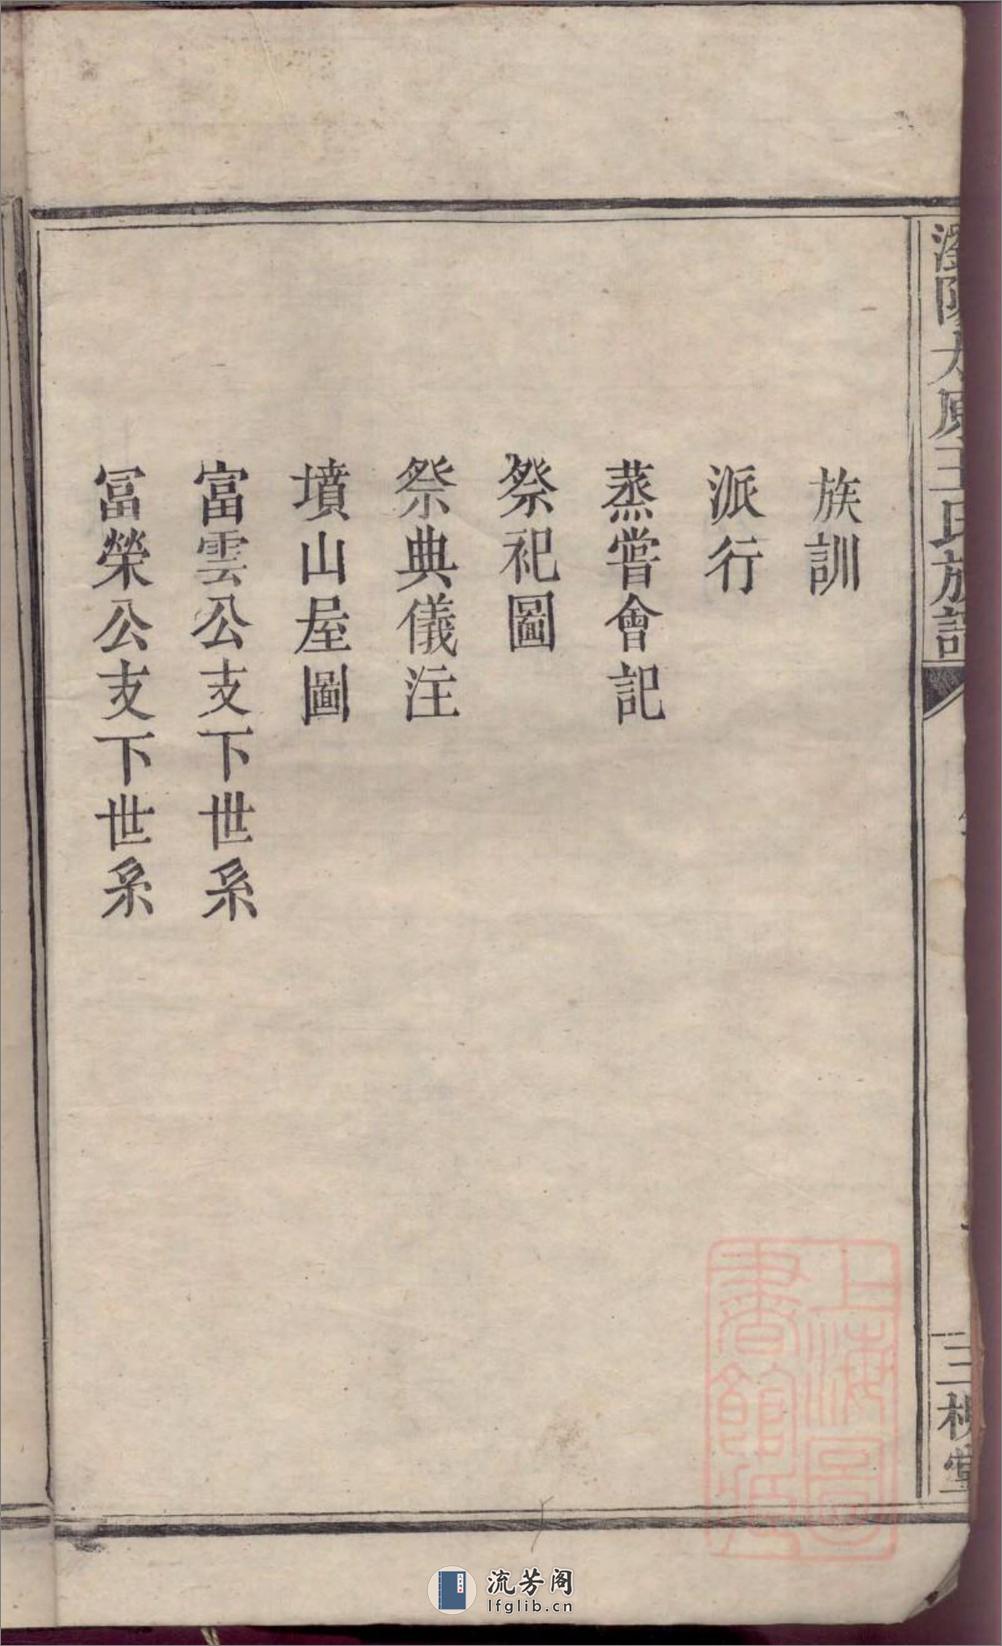 瀏陽太原王氏族譜
三槐堂
族訓
派行
蒸嘗會記
祭祀圖
祭典儀注
墳山屋圖
富雲公支下世系
冨榮公支下世系
上海圖
書館藏
流芳阁
lfglib.cn